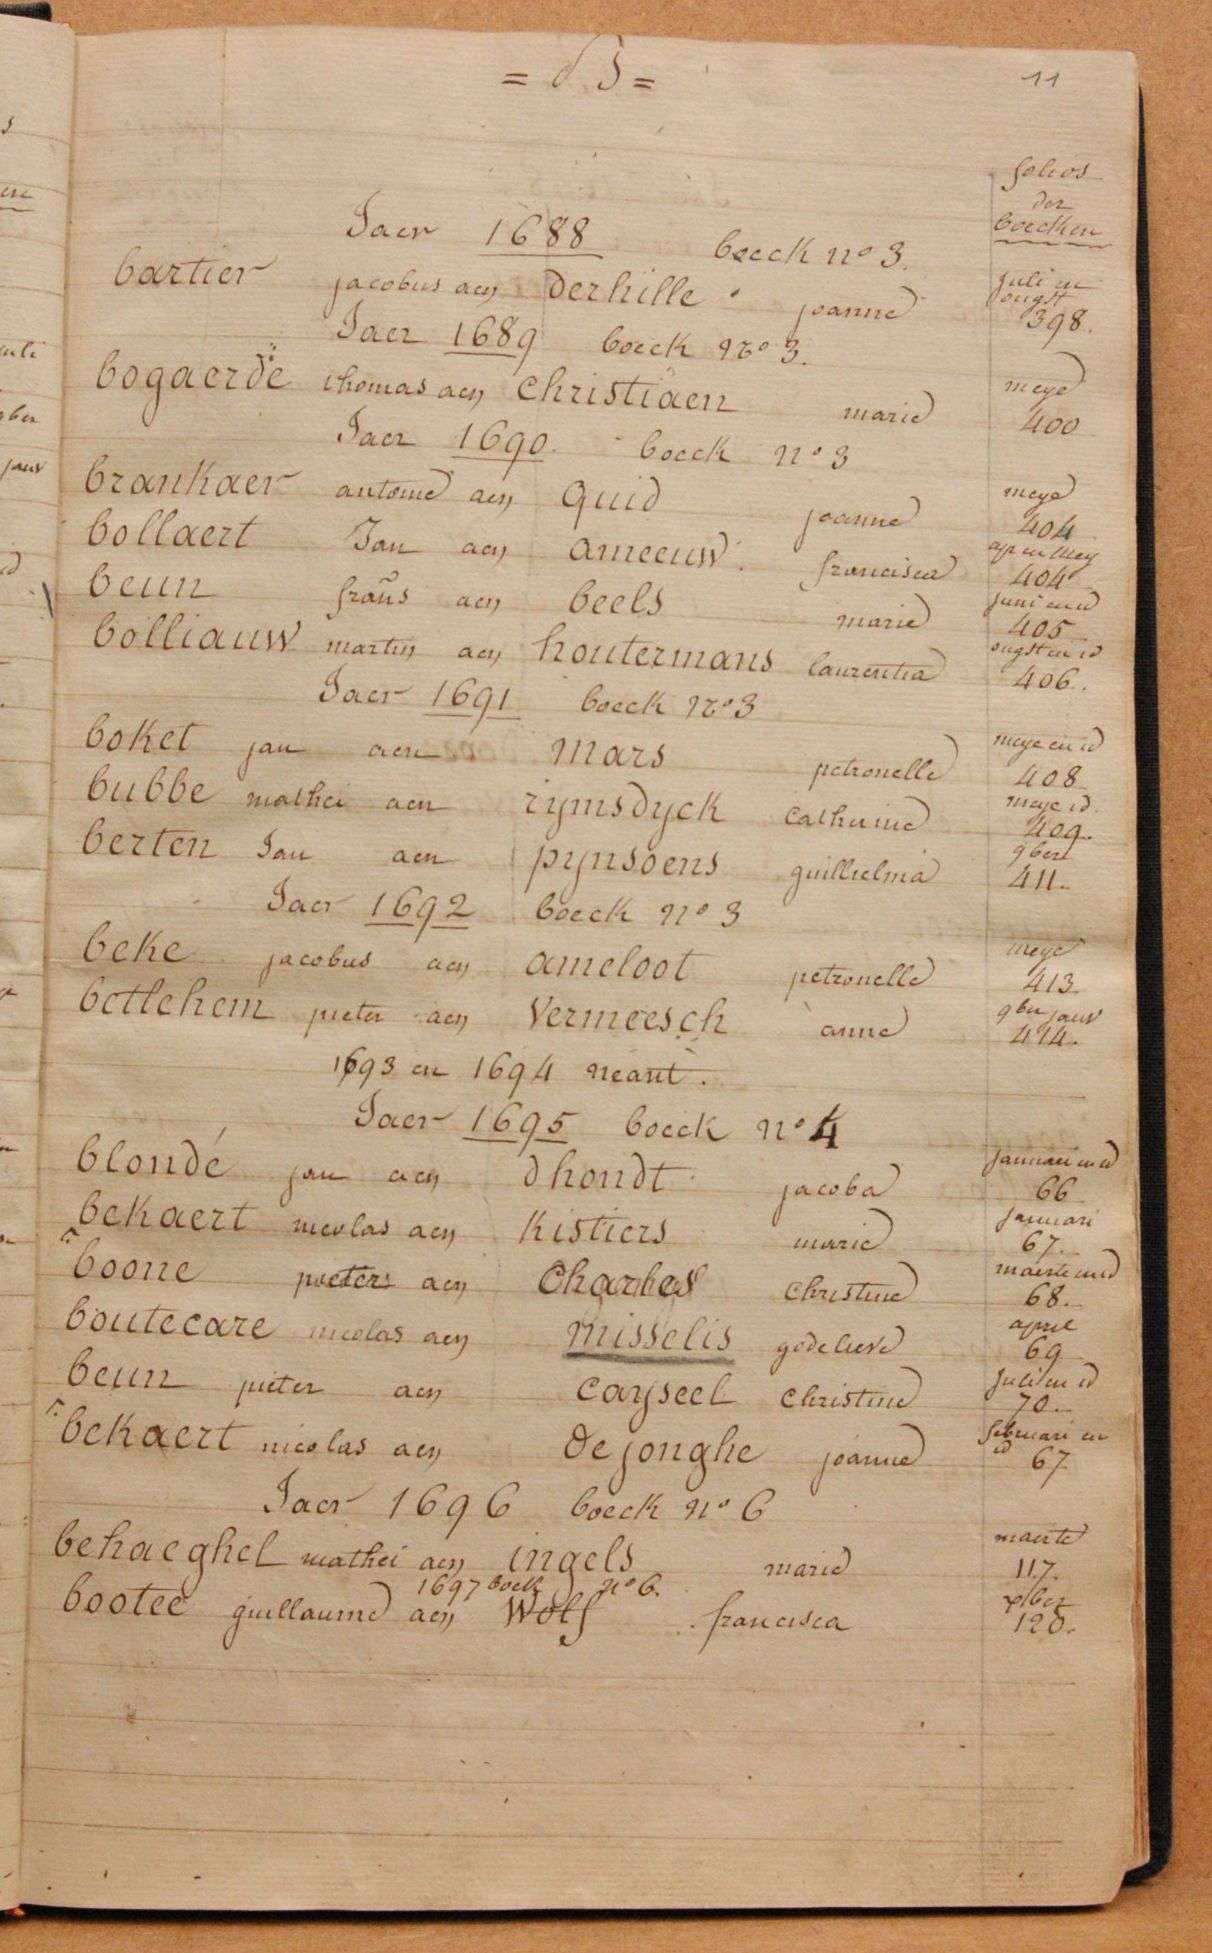 = B =
11
folios
der
boecken
Jaer 1688 boeck no 3.
bartier jacobus aen derhille joanne juli en ougst 398.
Jaer 1689 boeck no 3.
bogaerde thomas aen christiaen marie meye 400
Jaer 1690. boeck no 3
brankaer antoine aen quid joanne meye 404
bollaert Jan aen ameeuw. francisca ap en mey 404
beun frans aen beels marie juni en id 405
bolliauw martin aen houtermans laurentia ougst en id 406.
Jaer 1691 boeck no 3
boket jan aen mars petronelle meye en id 408
bubbe mathei aen rymsdyck catherine meye id. 409.
berten Jan aen pynsoens guillielma 9ber 411.
Jaer 1692 boeck no 3
beke jacobus aen ameloot petronelle meye 413
betlehem pieter aen vermeesch anne 9ber janv 414.
1693 en 1694 neant.
Jaer 1695 boeck no 4
blondé jan aen dhondt jacoba januari en id 66
bekaert nicolas aen kistiers marie januari 67.
boone pieter aen Charles christine maerte en id 68.
boutecare nicolas aen misselis godelieve april 69
beun pieter aen cayseel christine juli en id 70.
bekaert nicolas aen de jonghe joanne februari en id 67
Jaer 1696 boeck no 6
behaeghel mathei aen ingels marie maerte 117.
1697 boeck no 6.
bootee guillaume aen Wolf francisca xber 120.